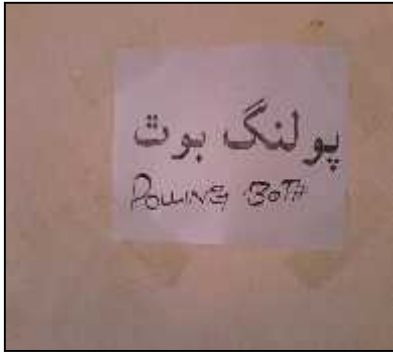 پولنگ بوٹ
POLLING BOTH